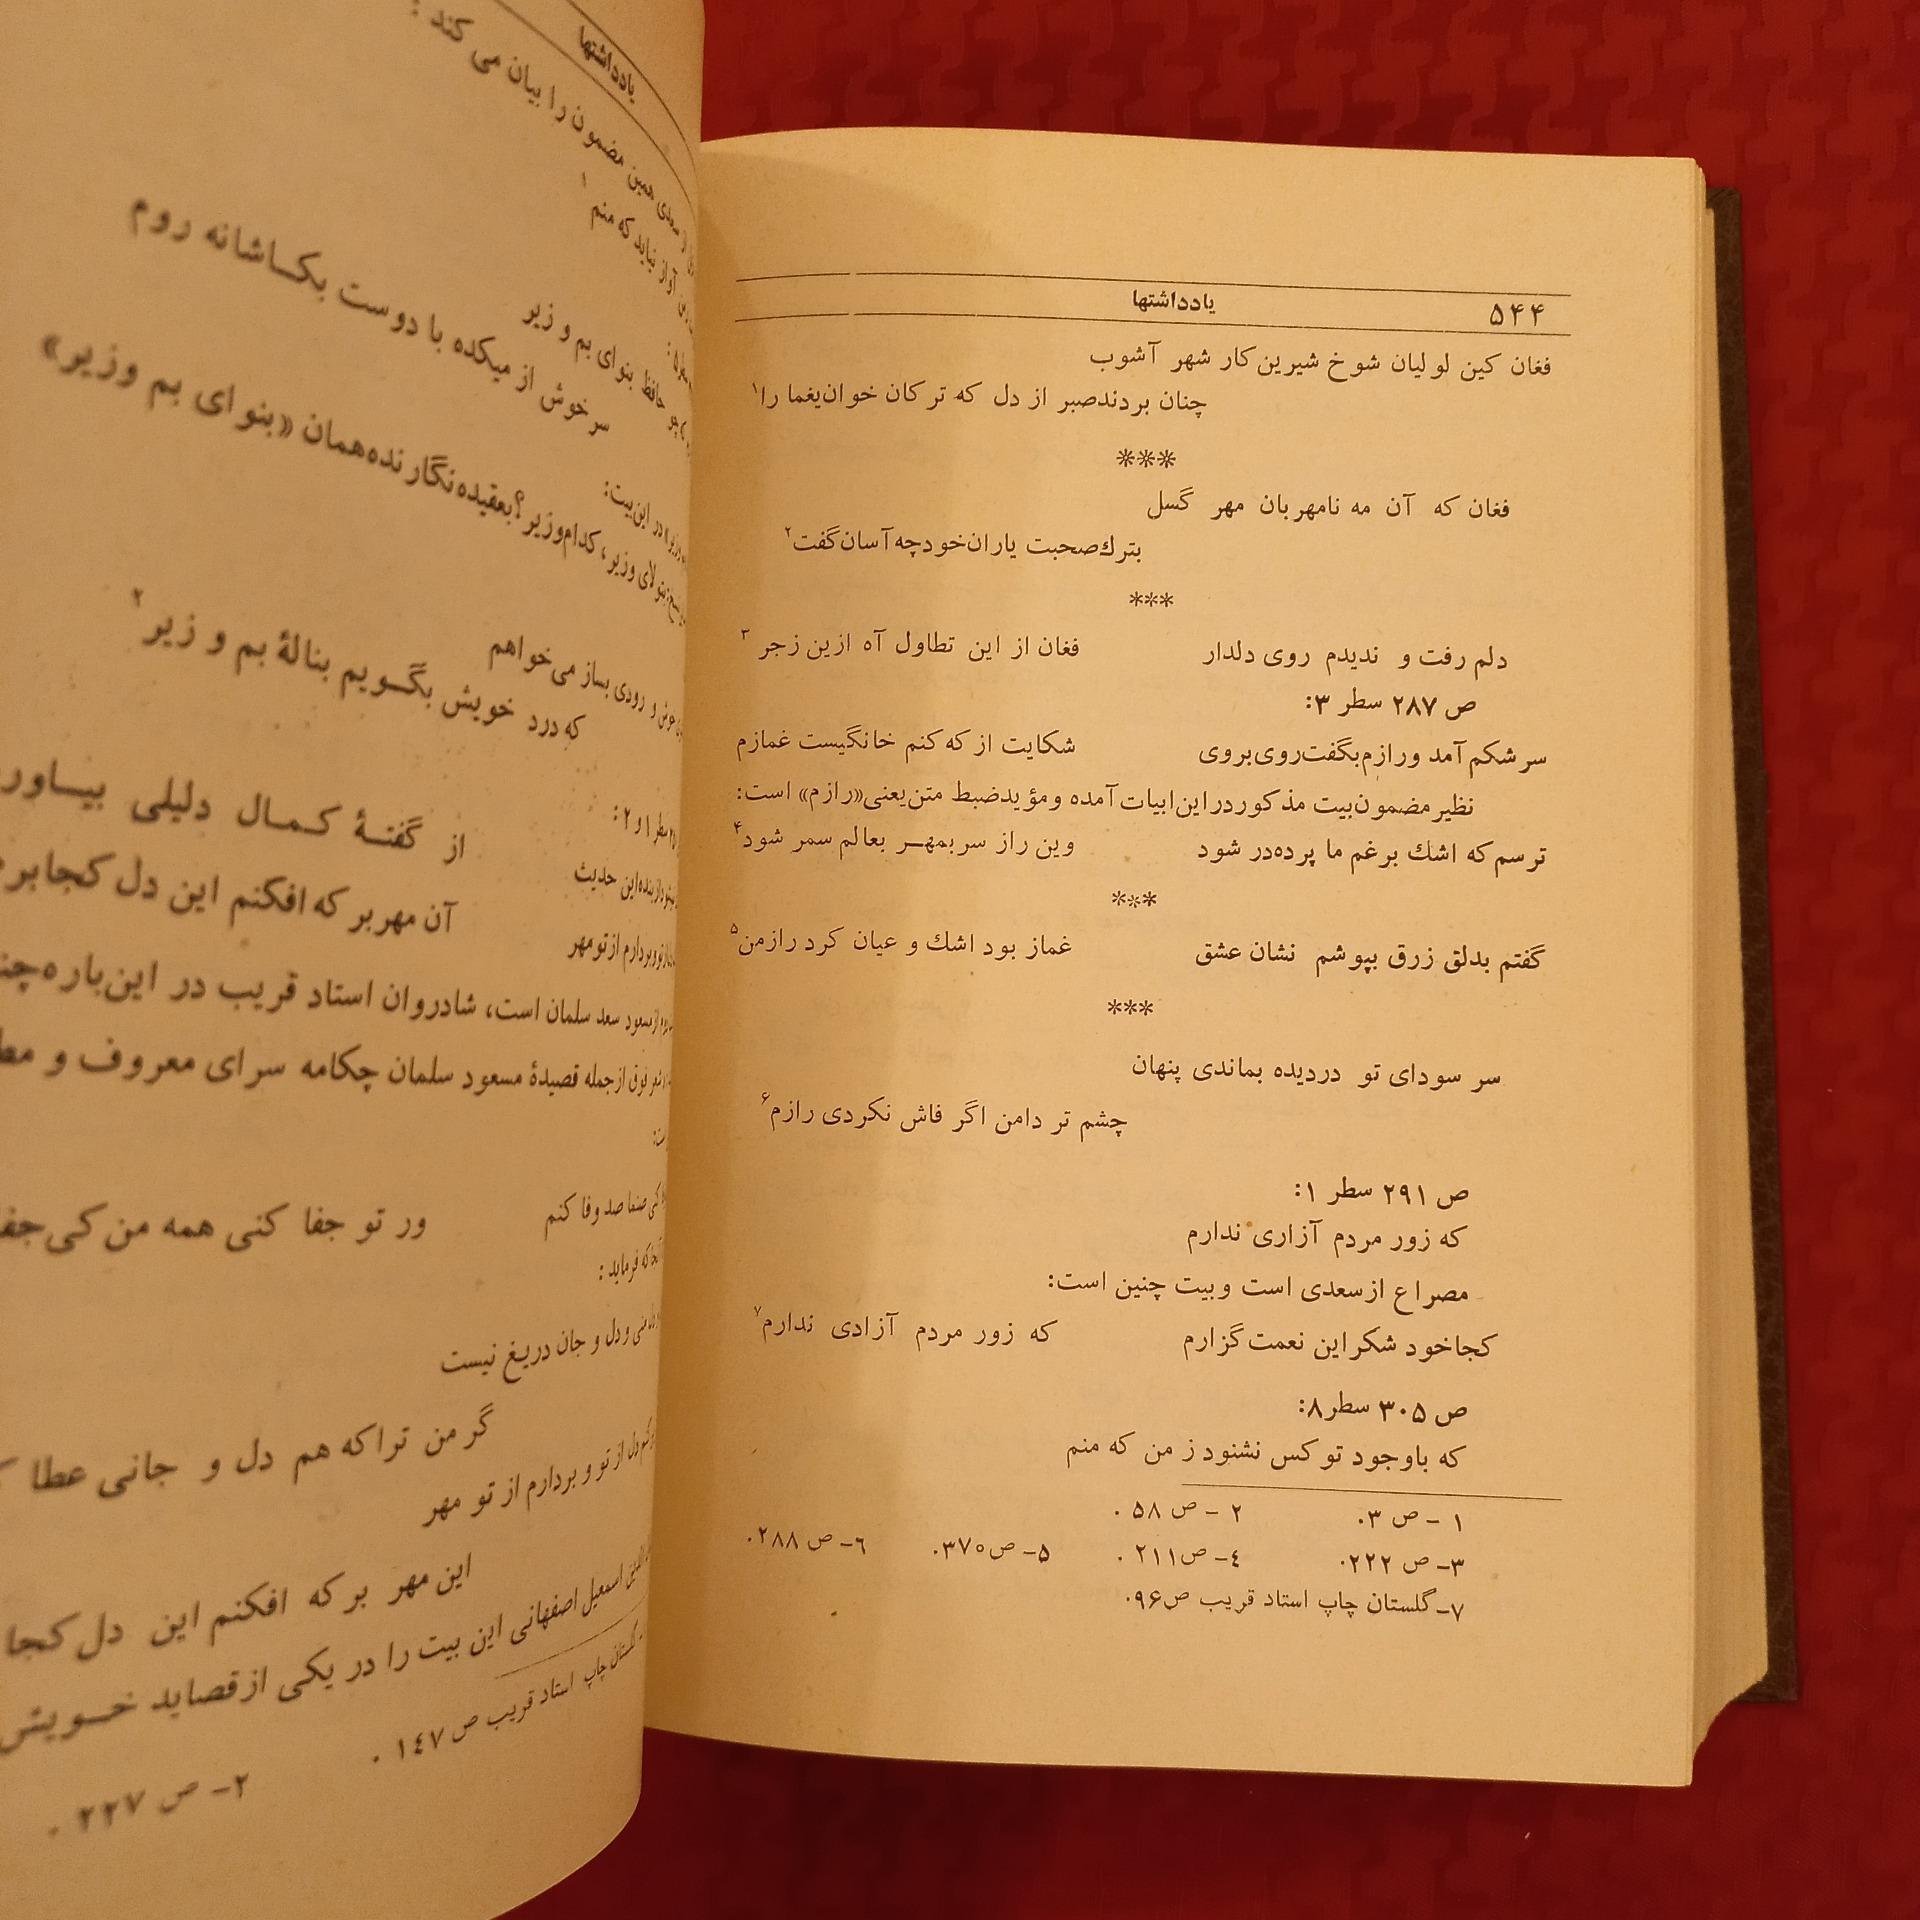 ۵۴۴
یادداشتها
فغان کین لولیان شوخ شیرین‌کار شهر آشوب
چنان بردندصبر از دل که ترکان خوان‌یغما را۱
***
فغان که آن مه نامهربان مهر گسل
بترك‌صحبت یاران‌خودچه‌آسان‌گفت۲
***
دلم رفت و ندیدم روی دلدار فغان از این تطاول آه ازین زجر۳
ص ۲۸۷ سطر ۳:
سرشکم آمد ورازم‌بگفت‌روی‌بروی شکایت از که کنم خانگیست غمازم
نظیرمضمون‌بیت مذکوردراین‌ابیات آمده ومؤیدضبط متن‌یعنی«رازم» است:
ترسم که اشك برغم ما پرده‌در شود وین راز سربمهر بعالم سمر شود۴
***
گفتم بدلق زرق بپوشم نشان عشق غماز بود اشك و عیان کرد رازمن۵
***
سر سودای تو دردیده بماندی پنهان
چشم تر دامن اگر فاش نکردی رازم۶
ص ۲۹۱ سطر ۱:
که زور مردم آزاری ندارم
مصراع ازسعدی است وبیت چنین است:
کجاخود شکراین نعمت‌گزارم که زور مردم آزادی ندارم۷
ص ۳۰۵ سطر۸:
که باوجود توکس نشنود ز من که منم
۱ - ص ۳. ۲ - ص ۵۸.
۳- ص ۲۲۲. ٤- ص۲۱۱. ۵- ص۳۷۰. ٦- ص ۲۸۸.
۷- گلستان چاپ استاد قریب ص۹۶.
یادداشتها
سعدی همین مضمون را بیان می کند :
آواز نیاید که منم۱
حافظ بنوای بم و زیر
سرخوش از میکده با دوست بکاشانه روم
در این‌بیت:
کدام‌وزیر؟بعقیده‌نگارنده‌همان «بنوای بم وزیر»
و رودی بساز می‌خواهم
که درد خویش بگویم بنالهٔ بم و زیر۲
سطر ۱ و ۲:
این حدیث از گفتهٔ کمال دلیلی
وبردارم ازتومهر آن مهربر که افکنم این دل کجا
مسعود سعد سلمان است، شادروان استاد قریب در این‌باره
فوق ازجمله قصیدهٔ مسعود سلمان چکامه سرای معروف و
صنما صد وفا کنم ور تو جفا کنی همه من کی
که فرماید :
و دل و جان دریغ نیست
گر من تراکه هم دل و جانی عطا
دل از تو و بردارم از تو مهر
این مهر بر که افکنم این دل کجا
اسمعیل اصفهانی این بیت را در یکی ازقصاید خویش
گلستان چاپ استاد قریب ص ۱٤۷ .
۲- ص ۲۲۷ .